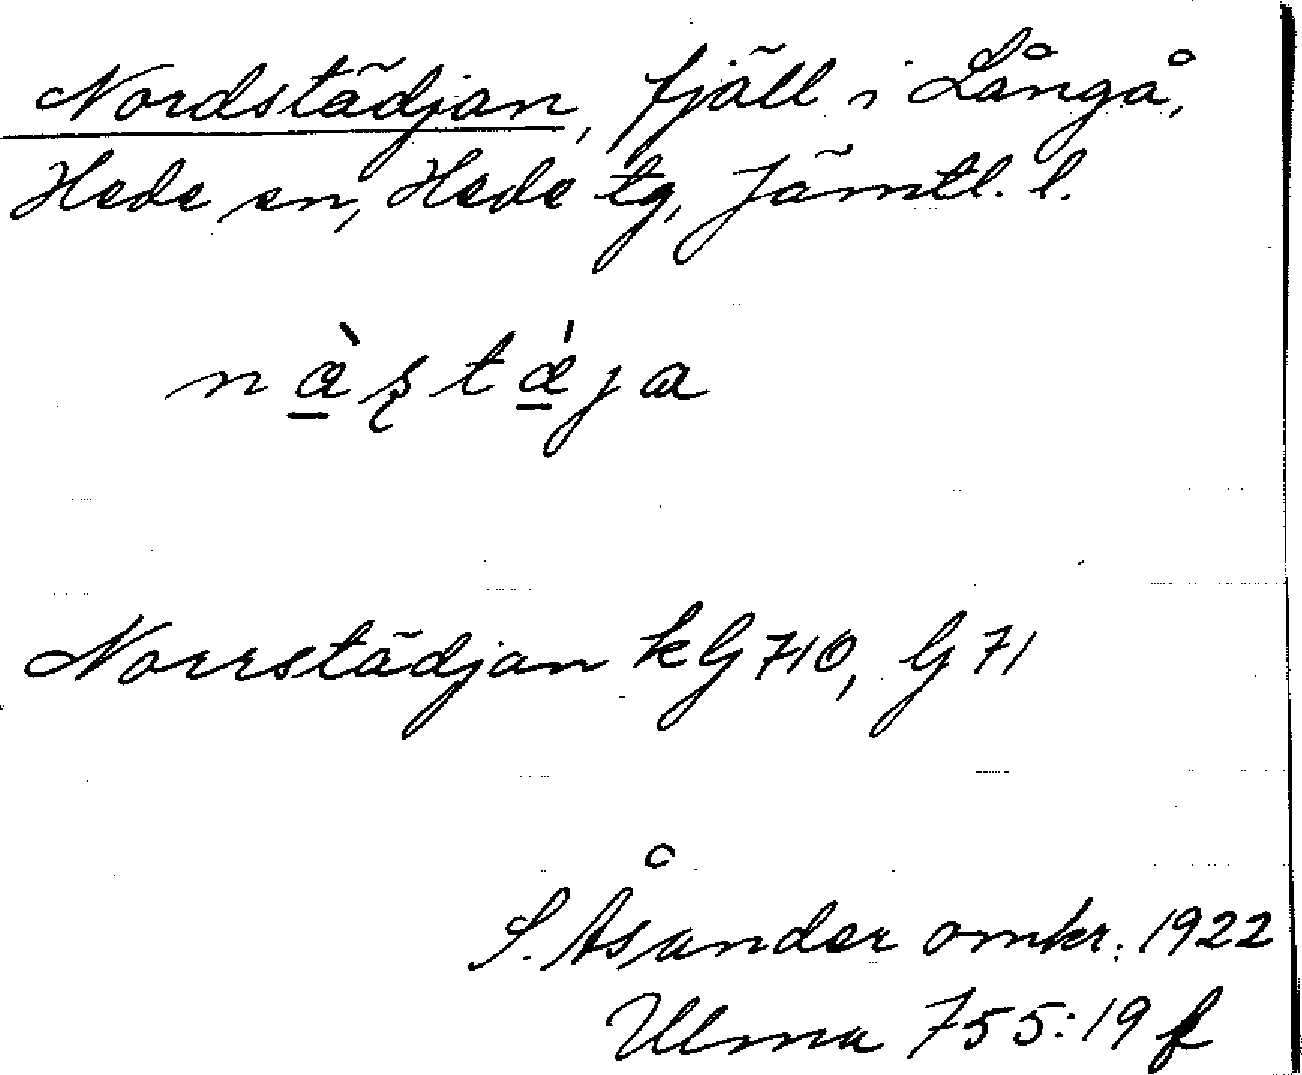 Nordstädjan, fjäll i Långå,
Hede sn, Hede tg, Jämtl. l.
næ̱̀ʂtǽ̱ja
Norrstädjan kG 710, G 71
S. Åsander omkr. 1922
Ulma 755:19 f